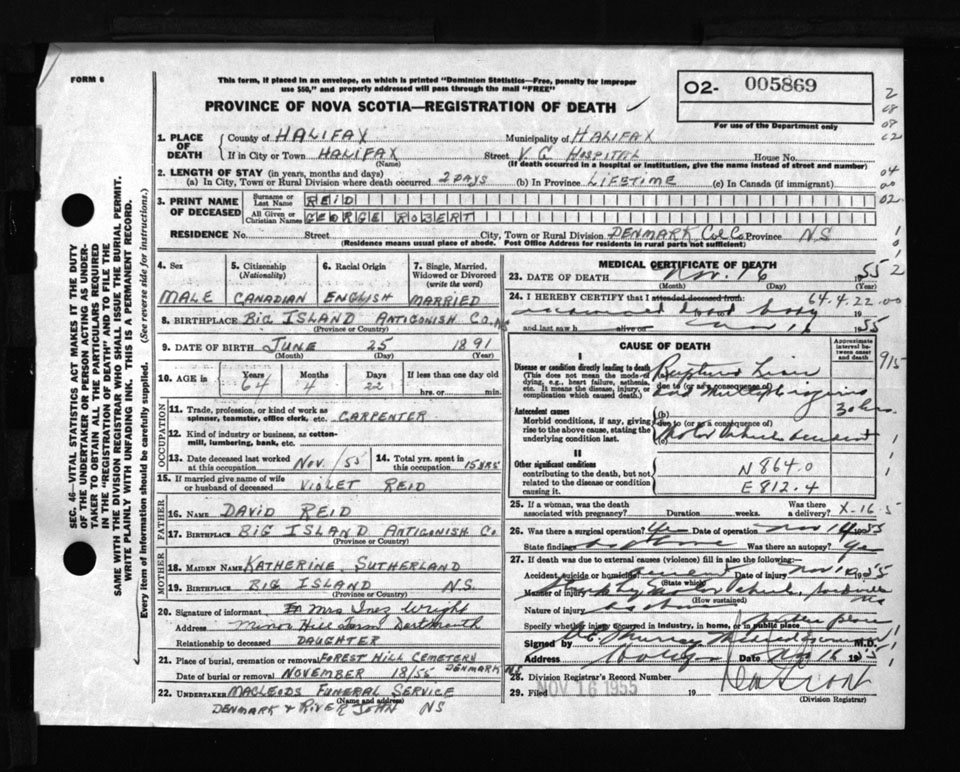 FORM 6
This form, if placed in an envelope, on which is printed "Dominion Statistics—Free, penalty for improper
use $50," and properly addressed will pass through the mail "FREE"
PROVINCE OF NOVA SCOTIA—REGISTRATION OF DEATH
02- 005869
For use of the Department only
1. PLACE OF DEATH
County of HALIFAX Municipality of HALIFAX
If in City or Town HALIFAX Street V. G. HOSPITAL House No.
(Name) (If death occurred in a hospital or institution, give the name instead of street and number)
2. LENGTH OF STAY (in years, months and days)
(a) In City, Town or Rural Division where death occurred 2 DAYS (b) In Province LIFETIME (c) In Canada (if immigrant)
3. PRINT NAME OF DECEASED
Surname or Last Name REID
All Given or Christian Names GEORGE ROBERT
RESIDENCE No. Street City, Town or Rural Division DENMARK Col Co Province N S
(Residence means usual place of abode. Post Office Address for residents in rural parts not sufficient)
4. Sex MALE
5. Citizenship (Nationality) CANADIAN
6. Racial Origin ENGLISH
7. Single, Married, Widowed or Divorced (write the word) MARRIED
8. BIRTHPLACE BIG ISLAND ANTIGONISH CO. NS
(Province or Country)
9. DATE OF BIRTH JUNE 25 1891
(Month) (Day) (Year)
10. AGE in Years 64 Months 4 Days 22 If less than one day old
hrs. or min.
OCCUPATION
11. Trade, profession, or kind of work as spinner, teamster, office clerk, etc. CARPENTER
12. Kind of industry or business, as cotton-mill, lumbering, bank, etc.
13. Date deceased last worked at this occupation NOV. /55
14. Total yrs. spent in this occupation 15 YRS
15. If married give name of wife or husband of deceased VIOLET REID
FATHER
16. NAME DAVID REID
17. BIRTHPLACE BIG ISLAND ANTIGONISH CO.
(Province or Country)
MOTHER
18. MAIDEN NAME KATHERINE SUTHERLAND
19. BIRTHPLACE BIG ISLAND N.S.
(Province or Country)
20. Signature of informant Mrs Inez Wright
Address Dartmouth
Relationship to deceased DAUGHTER
21. Place of burial, cremation or removal FOREST HILL CEMETERY DENMARK NS
Date of burial or removal NOVEMBER 18/55
22. UNDERTAKER MACLEODS FUNERAL SERVICE
(Name and address)
DENMARK & RIVER JOHN NS
MEDICAL CERTIFICATE OF DEATH
23. DATE OF DEATH Nov. 16 1955
(Month) (Day)
24. I HEREBY CERTIFY that I attended deceased from: 64.4.22.00
dead body 19
and last saw h alive on Nov 16 1955
CAUSE OF DEATH
Approximate interval between onset and death
I
Disease or condition directly leading to death
(This does not mean the mode of dying, e.g., heart failure, asthenia, etc. It means the disease, injury, or complication which caused death.)
Ruptured Liver
due to (or as a consequence of)
and Multiple injuries
Antecedent causes
Morbid conditions, if any, giving rise to the above cause, stating the underlying condition last.
(b)
due to (or as a consequence of)
Motor Vehicle accident
II
Other significant conditions
contributing to the death, but not related to the disease or condition causing it.
N 864.0
E 812.4
915
25. If a woman, was the death associated with pregnancy? Duration weeks. Was there a delivery? X-16-5
26. Was there a surgical operation? Yes Date of operation Nov 14 1955
State findings as above Was there an autopsy? Yes
27. If death was due to external causes (violence) fill in also the following:—
Accident, suicide or homicide? Accident Date of injury Nov 14 1955
(State which)
Manner of injury Struck by Motor Vehicle, Sackville NS
(How sustained)
Nature of injury as above
Specify whether injury occurred in industry, in home, or in public place public place
Signed by M.D.
Address Date Nov 16 1955
28. Division Registrar's Record Number
29. Filed NOV 16 1955 19
(Division Registrar)
SEC. 46—VITAL STATISTICS ACT MAKES IT THE DUTY
OF THE UNDERTAKER OR PERSON ACTING AS UNDER-
TAKER TO OBTAIN ALL THE PARTICULARS REQUIRED
IN THE "REGISTRATION OF DEATH" AND TO FILE THE
SAME WITH THE DIVISION REGISTRAR WHO SHALL ISSUE THE BURIAL PERMIT.
WRITE PLAINLY WITH UNFADING INK. THIS IS A PERMANENT RECORD.
Every item of information should be carefully supplied. (See reverse side for instructions.)